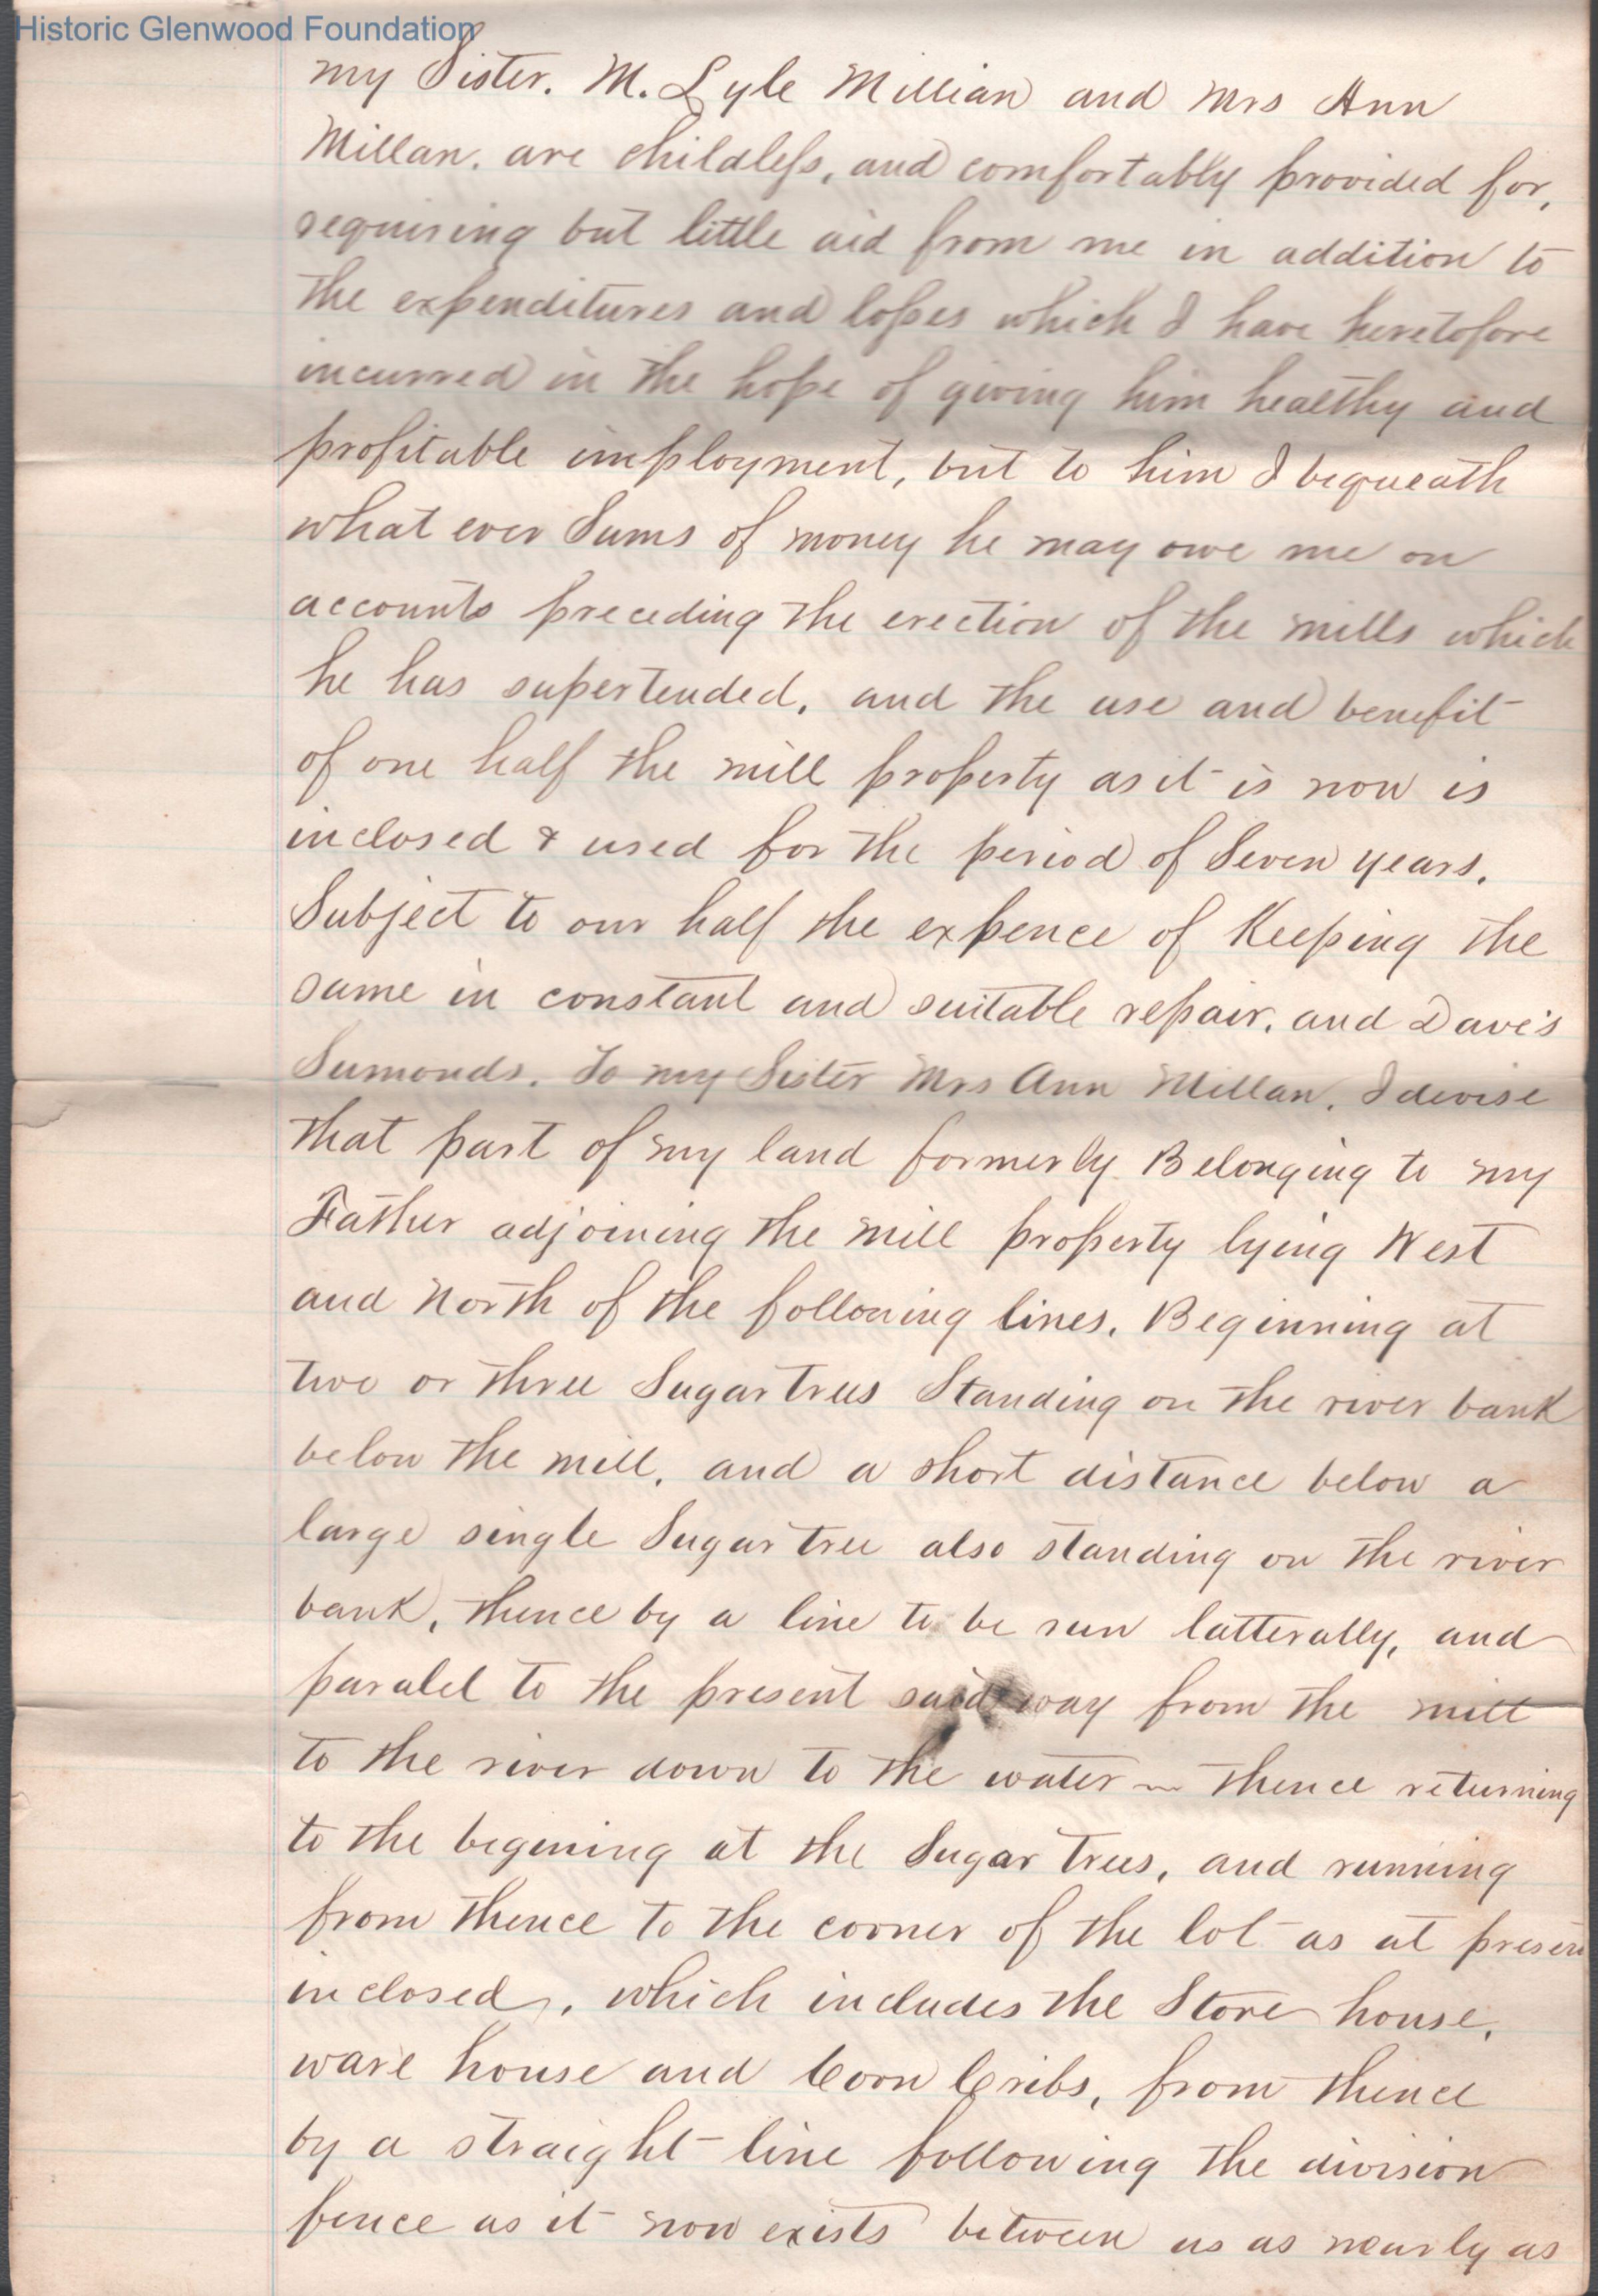 Historic Glenwood Foundation
my Sister. M. Lyle Millian and Mrs Ann
Millan. are childless, and comfortably provided for,
requiring but little aid from me in addition to
the expenditures and losses which I have heretofore
incurred in the hope of giving him healthy and
profitable imployment, but to him I bequeath
what ever Sums of money he may owe me on
accounts preceding the erection of the mills which
he has supertended, and the use and benefit
of one half the mill property as it is now is
inclosed & used for the period of Seven years.
Subject to our half the expence of Keeping the
same in constant and suitable repair. and Davis
Sumonds. To my Sister Mrs Ann Millan. I devise
that part of my land formerly Belonging to my
Father adjoining the mill property lying West
and North of the following lines. Beginning at
two or three Sugar trees Standing on the river bank
below the mill. and a short distance below a
large single Sugar tree also standing on the river
bank, thence by a line to be run latterally, and
paralel to the present said way from the mill
to the river down to the water thence returning
to the begining at the Sugar trees, and running
from thence to the corner of the lot as at present
inclosed, which includes the Store house,
ware house and Corn Cribs, from thence
by a straight line following the division
fence as it now exists between us as nearly as